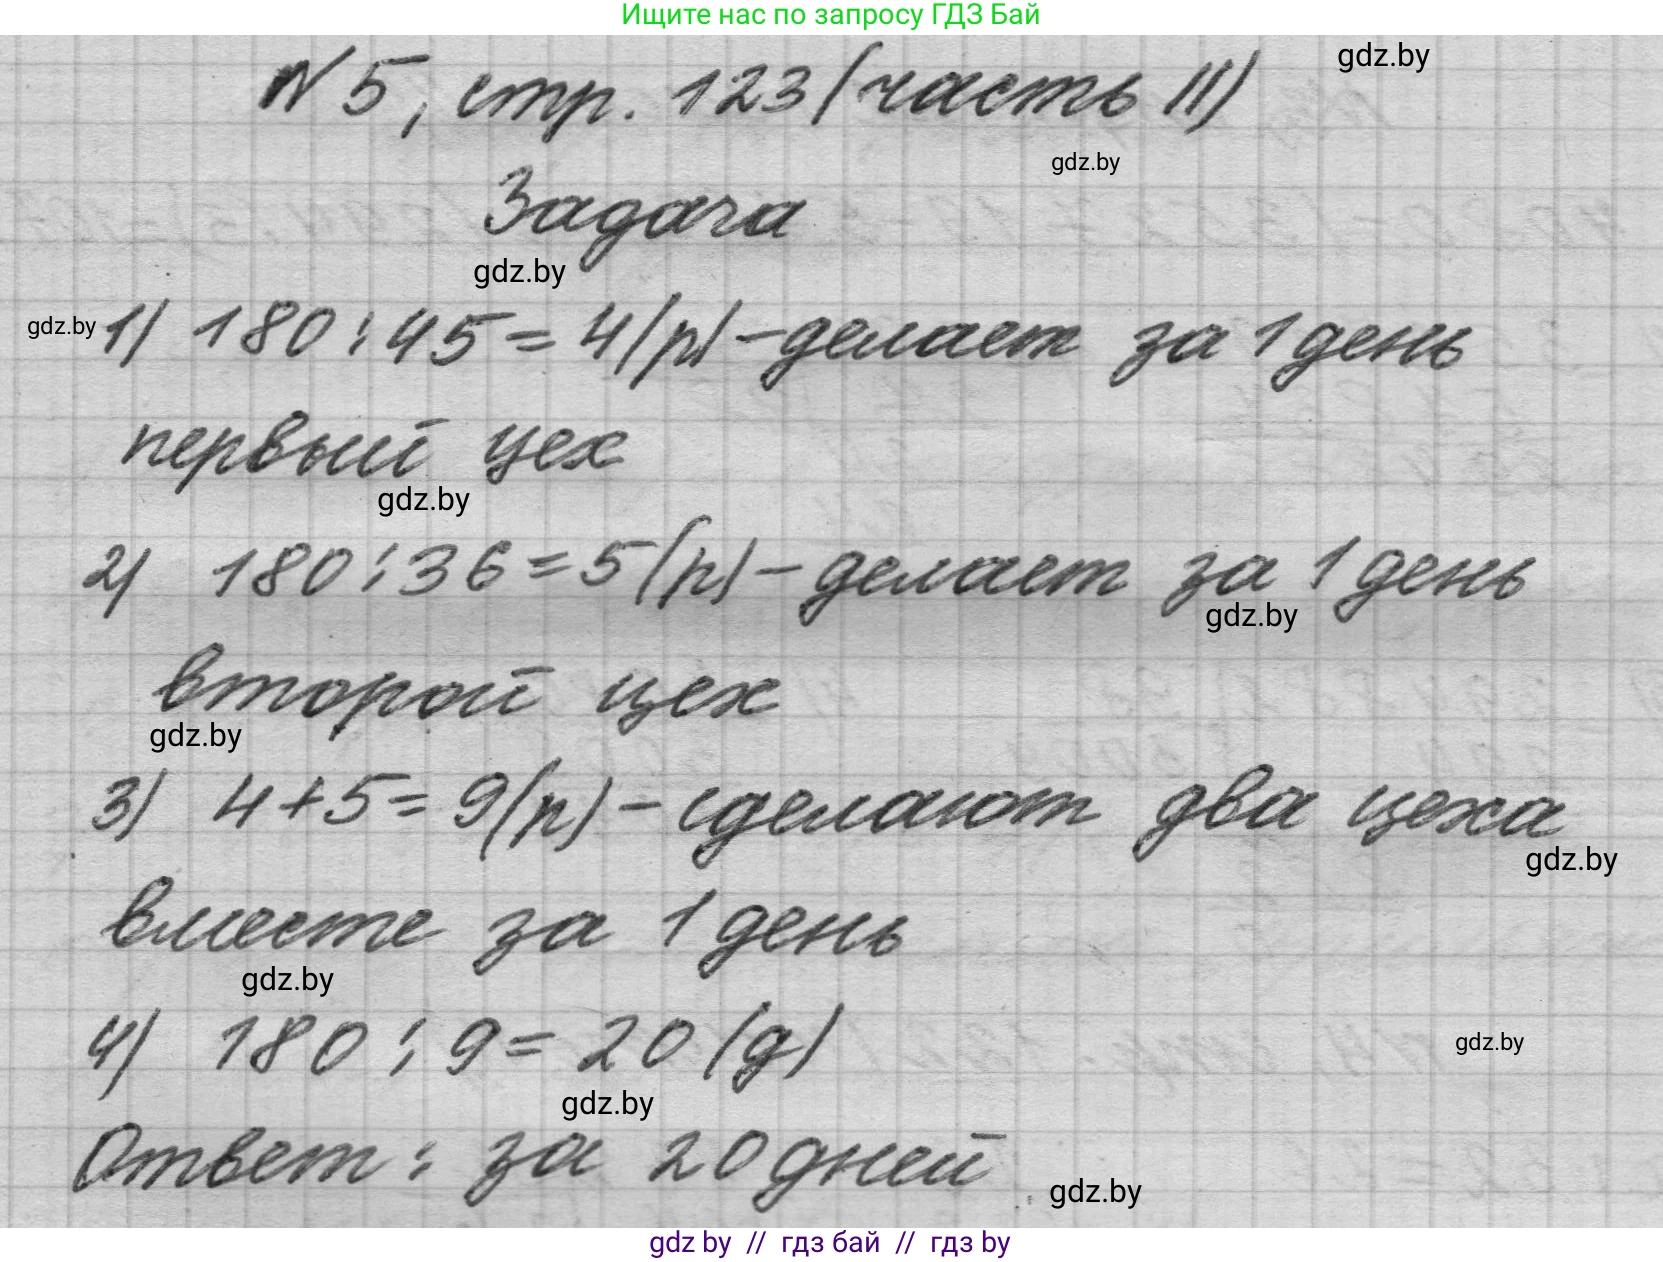 Ищите нас по запросу ГДЗ Бай
gdz.by
№ 5, стр. 123 (часть II)
gdz.by
Задача
gdz.by
gdz.by
1) 180 : 45 = 4 (р) - делает за 1 день
первый цех
gdz.by
2) 180 : 36 = 5 (р) - делает за 1 день
gdz.by
второй цех
gdz.by
3) 4 + 5 = 9 (р) - сделают два цеха
gdz.by
вместе за 1 день
gdz.by
4) 180 : 9 = 20 (д)
gdz.by
gdz.by
Ответ: за 20 дней
gdz.by
gdz by // гдз бай // гдз by